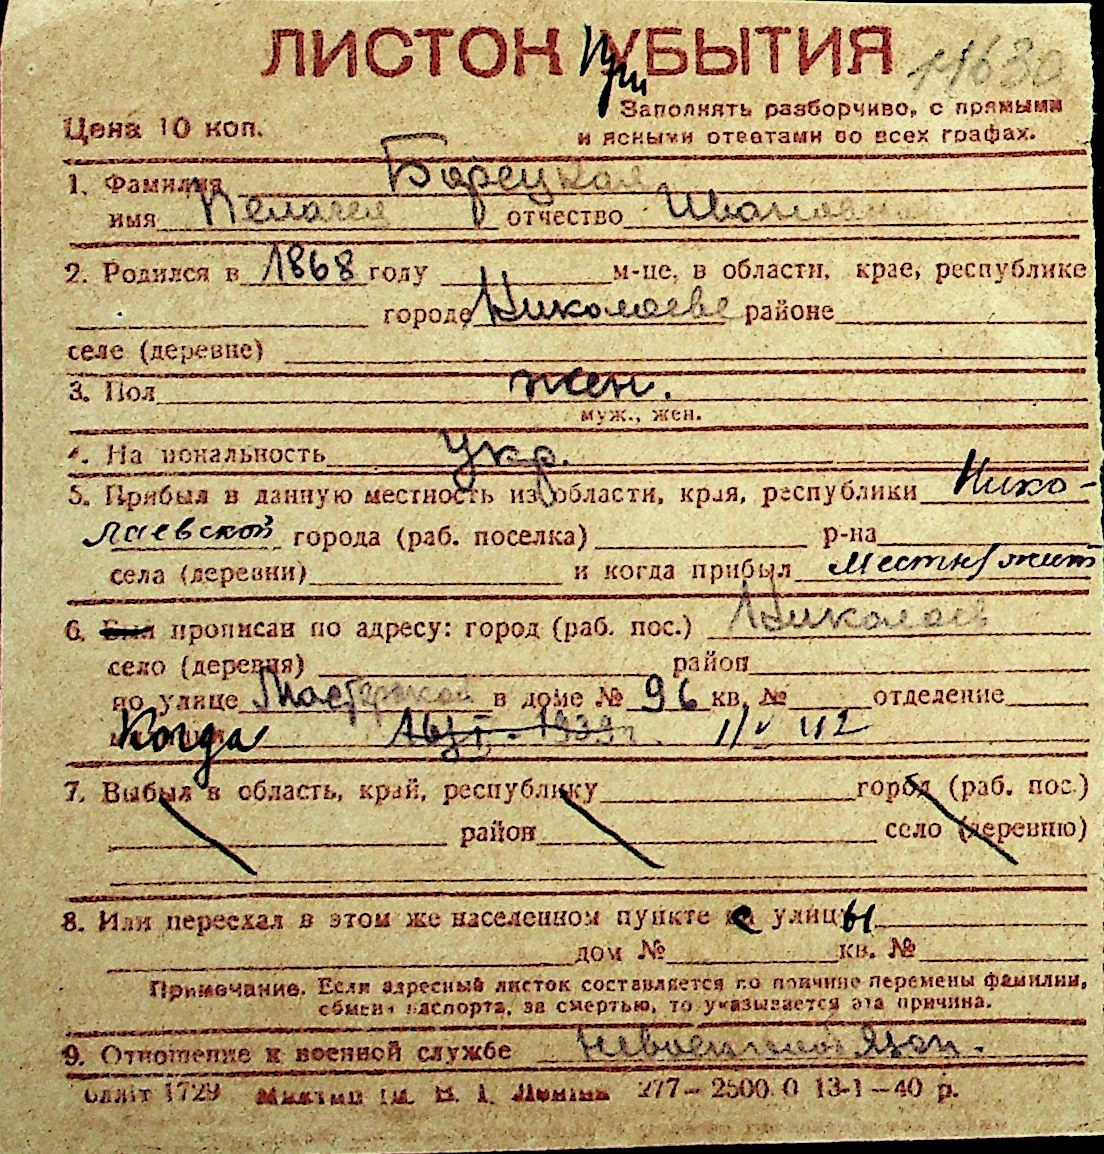 ЛИСТОК При УБЫТИЯ
Заполнять разборчиво, с прямыми
Цена 10 коп. и ясными ответами во всех графах.
1. Фамилия Борецкая
имя Пелагея отчество Ивановна
2. Родился в 1868 году м-це, в области, крае, республике
городе Николаеве районе
селе (деревне)
3. Пол жен.
муж., жен.
4. На иональность Укр.
5. Прибыл в данную местность из области, края, республики Нико-
лаевской города (раб. поселка) р-на
села (деревни) и когда прибыл местн/жит
6. Был прописан по адресу: город (раб. пос.) Николаев
село (деревня) район
по улице Мастерской в доме № 96 кв. № отделение
Когда 1939г. II/V 42
7. Выбыл в область, край, республику город (раб. пос.)
район село (деревню)
8. Или переехал в этом же населенном пункте с улицы
дом № кв. №
Примечание. Если адресный листок составляется по причине перемены фамилии,
обмена паспорта, за смертью, то указывается эта причина.
9. Отношение к военной службе невоеннообязан.
1729 277—2500.0 13-1—40 р.